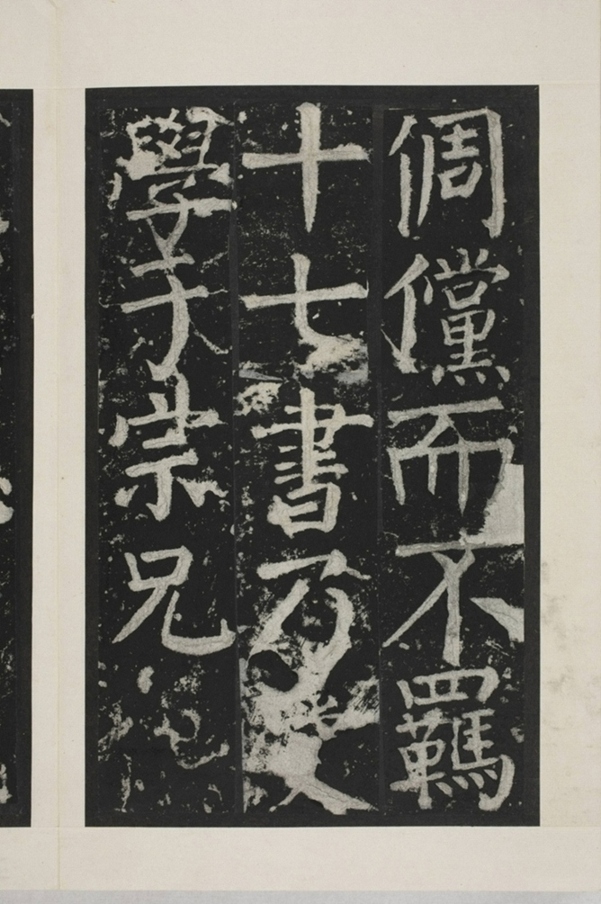 倜儻而不羈
十七書乃
學于崇兄